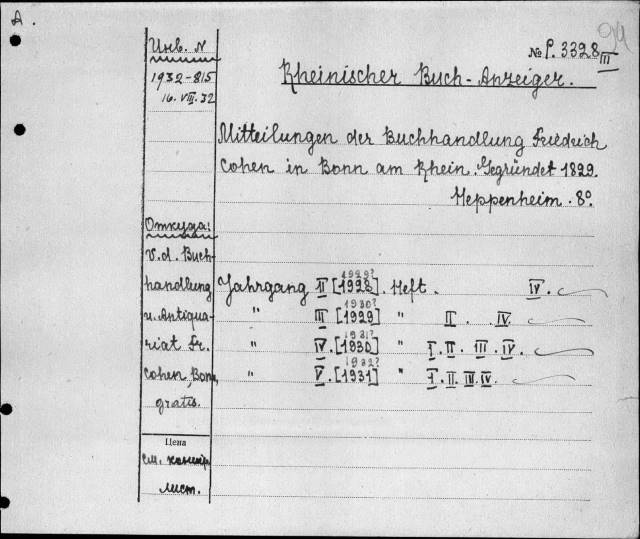 A.
94
Инв. N
№ P. 3328 III
1932-815
16. VIII. 32
Rheinischer Buch-Anzeiger.
Mitteilungen der Buchhandlung Friedrich
Cohen in Bonn am Rhein. Gegründet 1829.
Heppenheim. 8º.
Откуда:
V. d. Buch-
handlung
u. Antiqua-
riat Fr.
Cohen, Bonn,
gratis.
1929?
Jahrgang II [1928]. Heft. IV.
1930?
" III [1929] " II. IV.
1931?
" IV. [1930] " I. II. III. IV.
1932?
" V. [1931] " I. II. III. IV.
Цена
см.
лист.